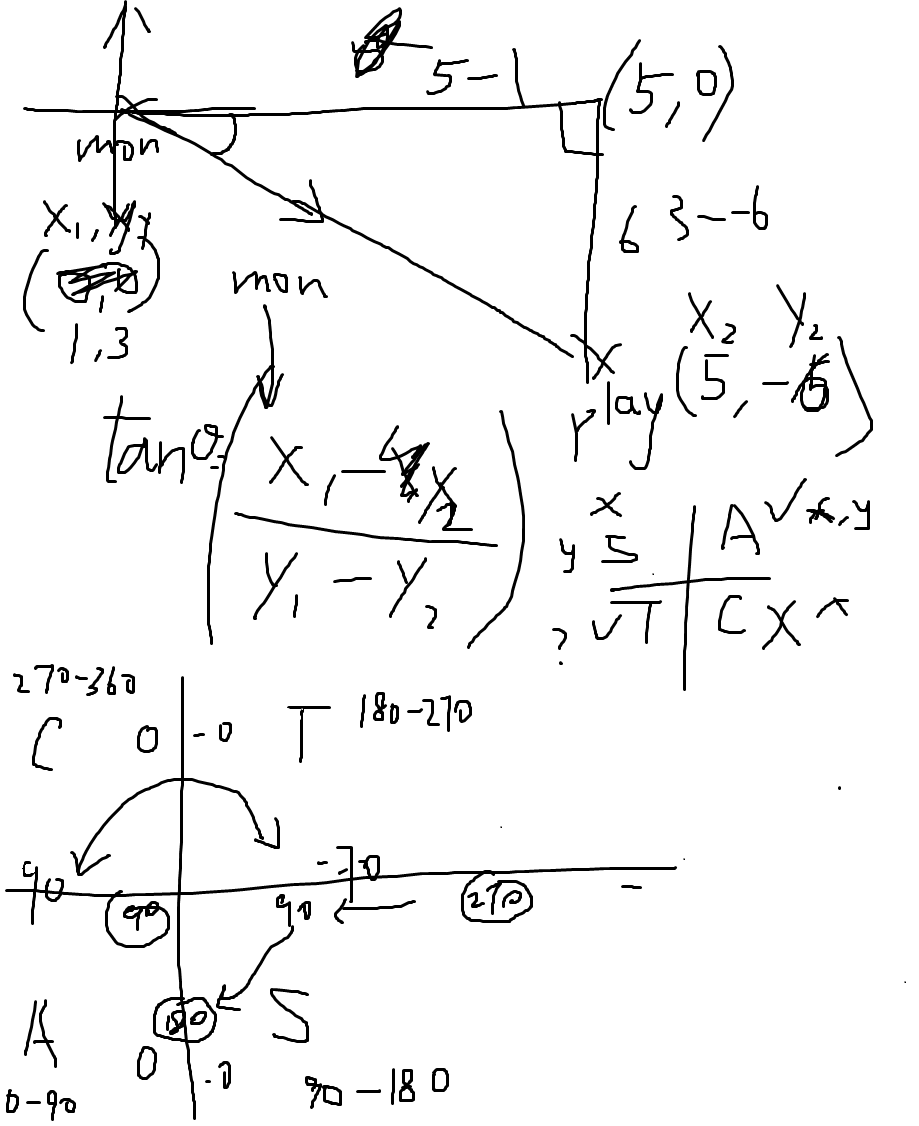 5-1
(5,0)
mon
x₁, y₁
1,3
6 3--6
mon
X₂ Y₂
play (5,-6)
tanθ=
X₁-X₂
Y₁-Y₂
x
y S A √ x,y
? √T C X ^
270-360
C 0 -0 T 180-270
90 -70 -
90 90 270
180
A S
0 -0
0-90 90-180